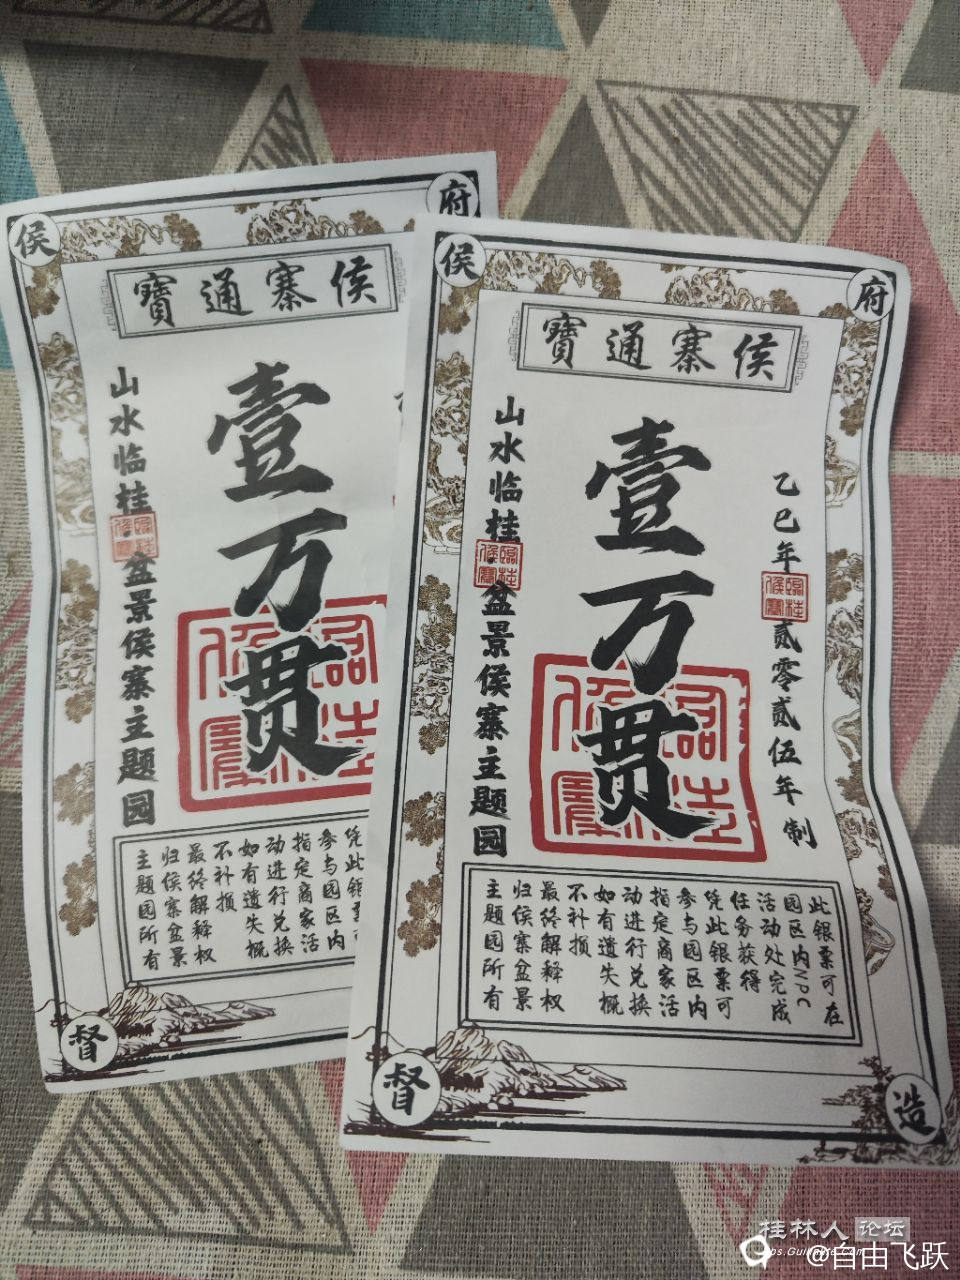 侯
府
侯寨通寶
壹万贯
山水临桂
盆景侯寨主题园
凭此银票可
参与园区内
指定商家活
动进行兑换
如有遗失概
不补损
最终解释权
归侯寨盆景
主题园所有
督
侯
府
侯寨通寶
乙巳年
贰零贰伍年制
壹万贯
山水临桂
盆景侯寨主题园
临桂侯寨
此银票可在
园区内NPC
活动处完成
任务获得
凭此银票可
参与园区内
指定商家活
动进行兑换
如有遗失概
不补损
最终解释权
归侯寨盆景
主题园所有
督
造
桂林人论坛
@自由飞跃